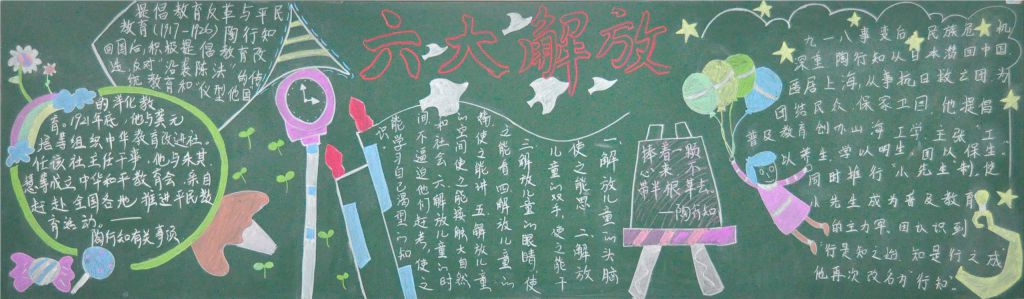 六大解放
提倡教育改革与平民
教育(1917-1926) 陶行知
回国后,积极提倡教育改
进,反对"沿袭陈法"的传
统教育和"仪型他国"
的洋化教
育。1921年底,他与
等组织中华教育改进社。
任该社主任干事,他与朱其
慧等成立中华平教育会,亲自
赶赴全国各地,推进平民教
育运动。——
陶行知有关事项
一.解放儿童的头脑
使之能思 二.解放
儿童的双手,使之能干
三.解放儿童的眼睛,使
之能看 四.解放儿童的
嘴,使之能讲 五.解放儿童
的空间,使之能接触大自然
和社会 六.解放儿童的时
间,不逼迫他们赶考,使之
能学习自己渴望的知
识。
捧着一颗
心来,不
带半根草去。
—陶行知
九一八事变后,民族危机
深重,陶行知从日本潜回中国
匿居上海,从事抗日救亡,团为
团结民众,保家卫国,他提倡
普及教育,创办山海工学,主张"工
以养生,学以明生,团以保生、
同时推行"小先生制",使
小先生成为普及教育
的主力军,因认识到
"行是知之始,知是行之成
他再次改名为"行知"。